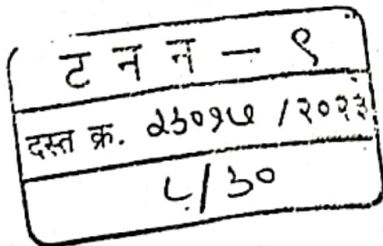 ट न न - ९
दस्त क्र. २३०१७ /२०२३
८/३०